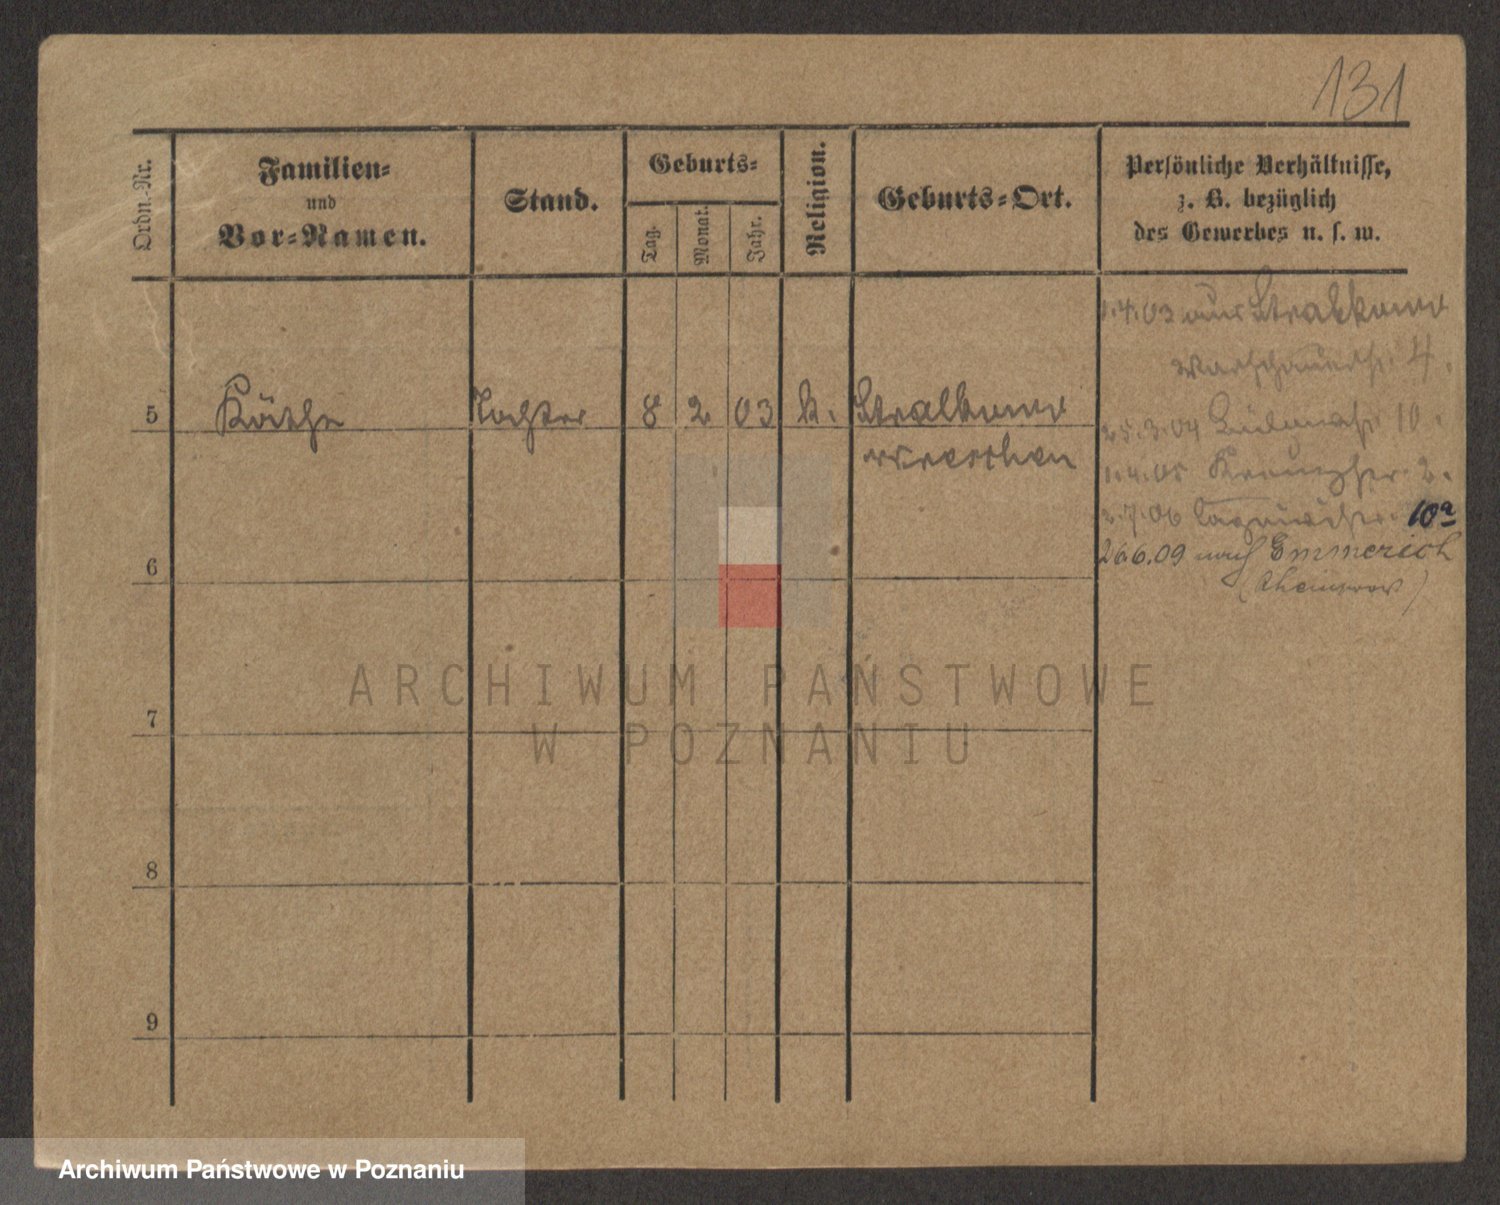 131
Ordn.-Nr.
Familien-
und
Vor-Namen.
Stand.
Geburts-
Tag.
Monat.
Jahr.
Religion.
Geburts-Ort.
Persönliche Verhältnisse,
z. B. bezüglich
des Gewerbes u. s. w.
1.4.03 aus Stralkowo
Warschauerstr. 4.
5 Käthe Tochter 8 2 03 k. Stralkowo
Wreschen
25.3.04 10.
1.4.05 2.
2.7.06 10a
26.6.09 nach Emmerich
(Rheinprov)
6
7
8
9
ARCHIWUM PAŃSTWOWE
W POZNANIU
Archiwum Państwowe w Poznaniu